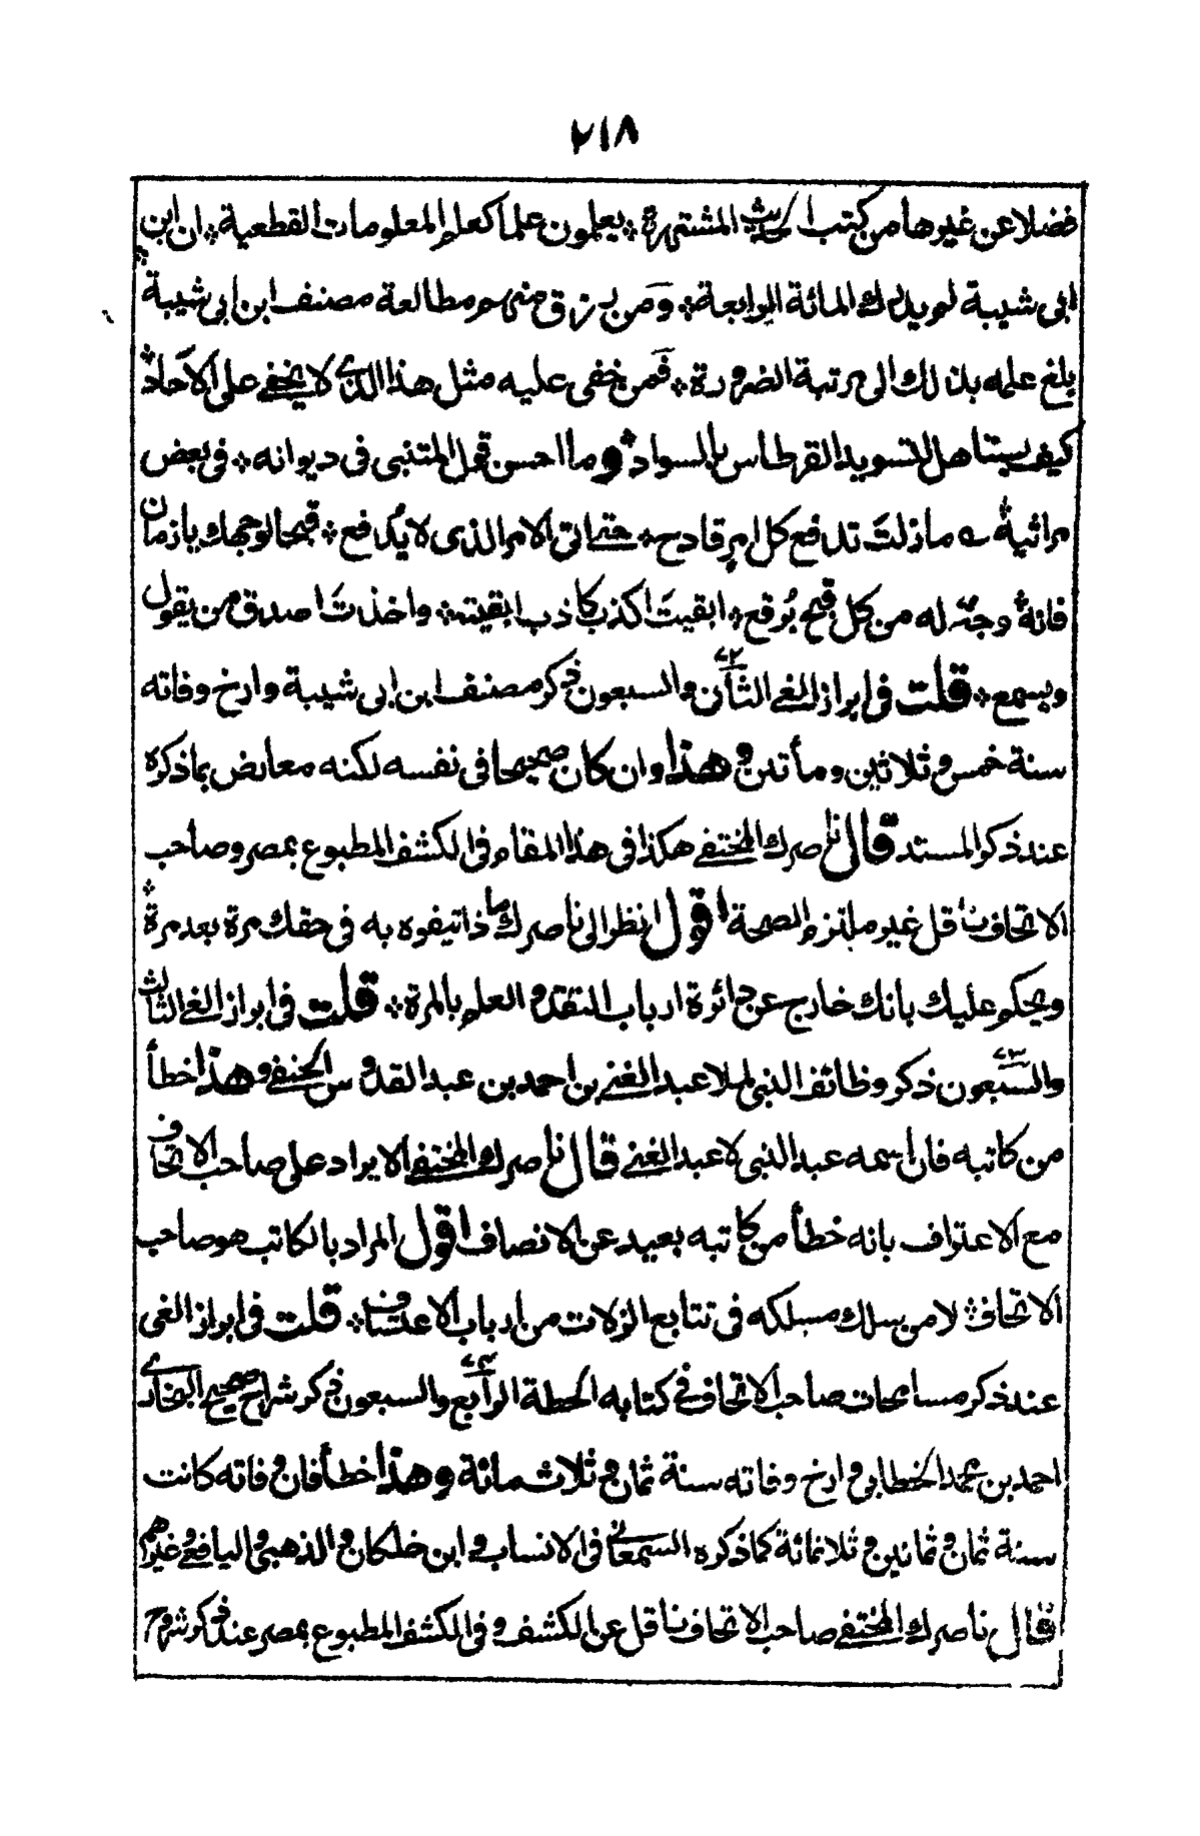 ٢١٨
فضلا عن غيرها من كتب الحديث المشتهرة ؞ يعلمون علما كعلم المعلومات القطعية ؞ ان ابن
ابى شيبة لم يدرك المائة الرابعة ؞ ومن رزق منهم مطالعة مصنف ابن ابى شيبة
بلغ علمه بذلك الى مرتبة الضرورة ؞ فمن خفى عليه مثل هذا الذى لا يخفى على الآحاد ؞
كيف يستاهل لتسويد القرطاس بالسواد ؞ وما احسن قول المتنبى فى ديوانه ؞ فى بعض
مراثية ؞ ے ما زلتَ تدفع كل امرٍ قادح ؞ حتى اتى الامر الذى لا يُدفع ؞ قبحا لوجهك يا زمان
فانهٗ وجهٌ له من كل قبح بُرقع ؞ ابقيتَ اكذب كاذب ابقيته ؞ واخذتَ اصدق من يقول
ويسمع ؞ قلت فى ابراز الغى الثانى ٧٢ والسبعون ذكر مصنف ابن ابى شيبة وارخ وفاته
سنة خمس وثلاثين ومأتين وهذا وان كان صحيحا فى نفسه لكنه معارض بما ذكره
عند ذكر المسند قال ناصرك المختفى هكذا فى هذا المقام فى الكشف المطبوع بمصر وصاحب
الاتحاف ناقل غير ملتزم الصحة ؞ اقول انظر الى ناصرك ما ذا تيفوه به فى حقك مرة بعد مرة ؞
ويحكم عليك بانك خارج عن دائرة ارباب النقد والعلم بالمرة ؞ قلت فى ابراز الغى الثالث
والسبعون ٧٣ ذكر وظائف النبى لملا عبد الغنى بن احمد بن عبد القدوس الحنفى وهذا خطأ
من كاتبه فان اسمه عبد النبى لا عبد الغنى قال ناصرك المختفى الايراد على صاحب الاتحاف
مع الاعتراف بانه خطأ من كاتبه بعيد عن الانصاف اقول المراد بالكاتب هو صاحب
الاتحاف ؞ لا من سلك مسلكه فى تتابع الزلات من ارباب الاعتساف ؞ قلت فى ابراز الغى
عند ذكر مسامحات صاحب الاتحاف فى كتابه الحطة الرابع ٧٤ والسبعون ذكر شراح صحيح البخارى
احمد بن محمد الخطابى وارخ وفاته سنة ثمان وثلاث مائة وهذا خطأ فان وفاته كانت
سنة ثمان وثمانين وثلاثمائة كما ذكره السمعانى فى الانساب وابن خلكان والذهبى واليافعى وغيرهم
قال ناصرك المختفى صاحب الاتحاف ناقل عن الكشف وفى الكشف المطبوع بمصر عند ذكر شروح